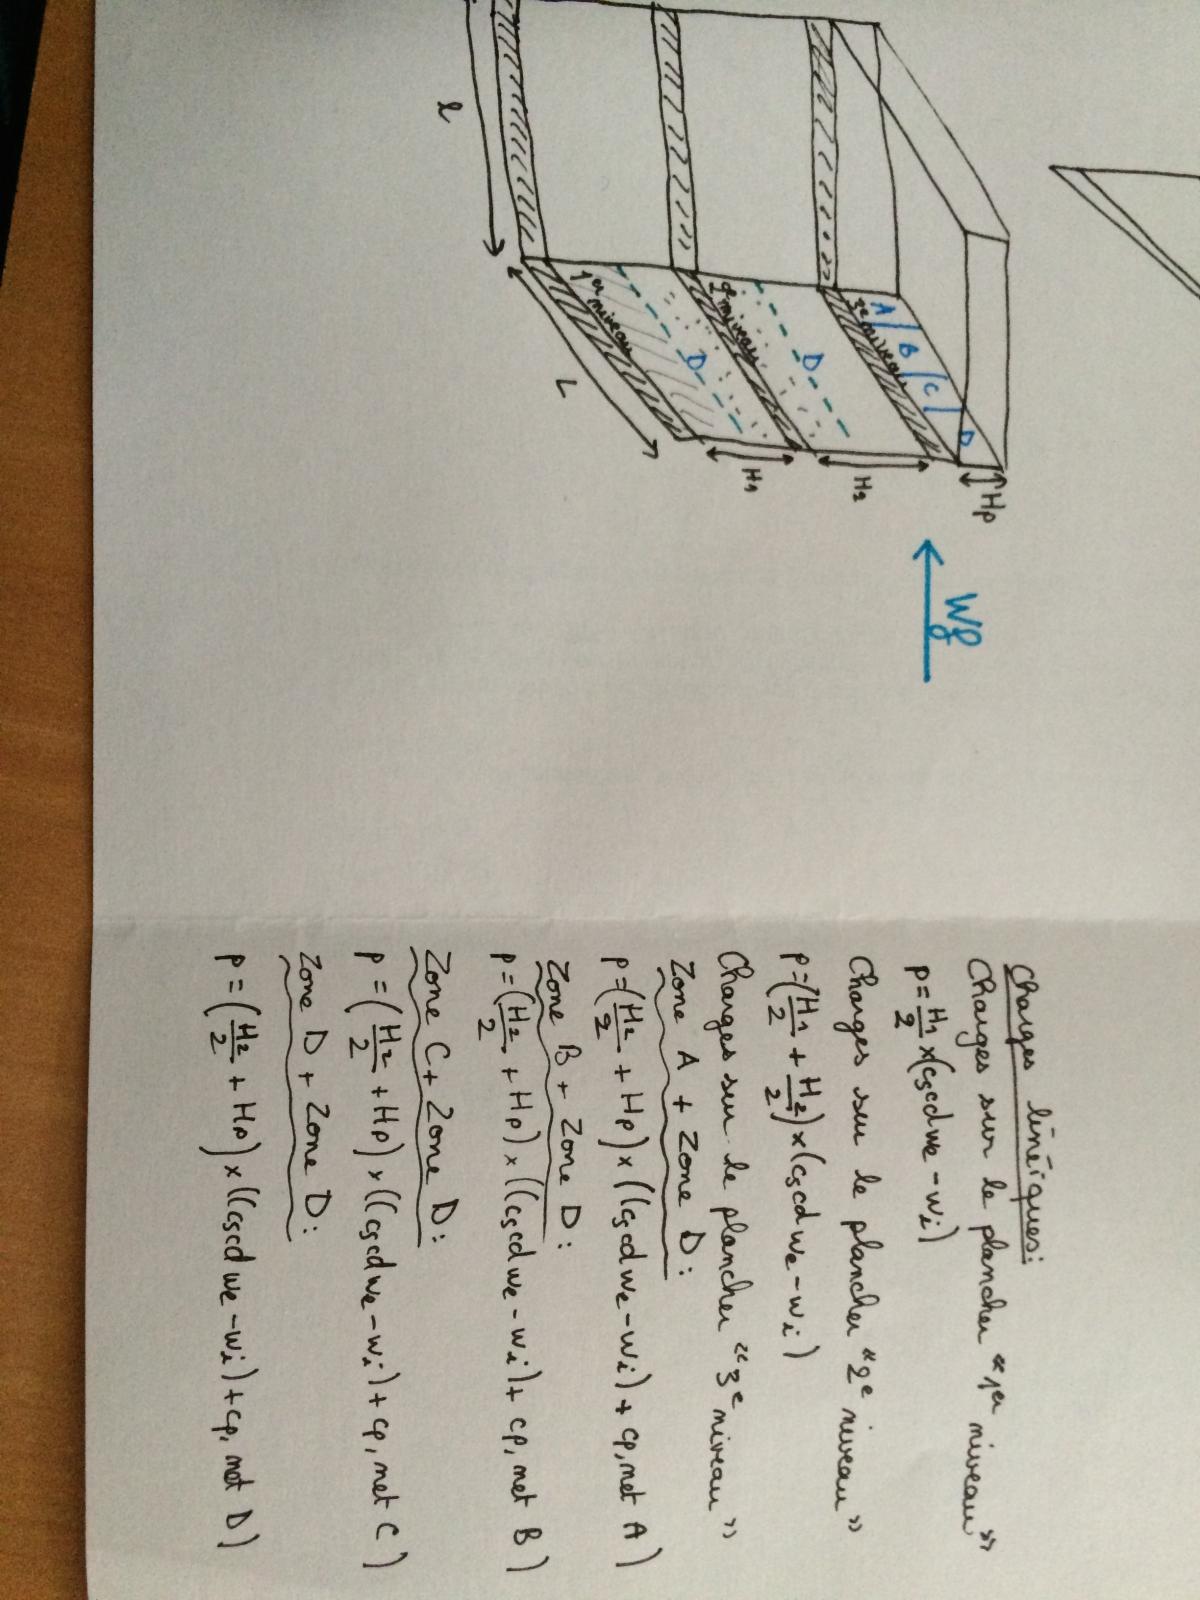 l
L
1er niveau
2e niveau
3e niveau
A
B
C
D
D
D
H1
H2
Hp
Wf
Charges linéiques:
Charges sur le plancher "1er niveau"
p = H1/2 x (cscd we - wi)
Charges sur le plancher "2e niveau"
p = (H1/2 + H2/2) x (cscd we - wi)
Charges sur le plancher "3e niveau"
Zone A + Zone D:
p = (H2/2 + Hp) x ((cscd we - wi) + cp, net A)
Zone B + Zone D:
p = (H2/2 + Hp) x ((cscd we - wi) + cp, net B)
Zone C + Zone D:
p = (H2/2 + Hp) x ((cscd we - wi) + cp, net C)
Zone D + Zone D:
p = (H2/2 + Hp) x ((cscd we - wi) + cp, net D)